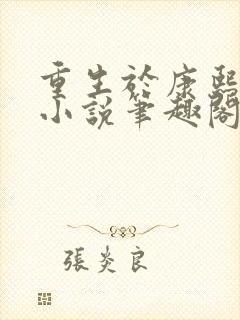 重生於康熙
小說筆趣閣
張炎良